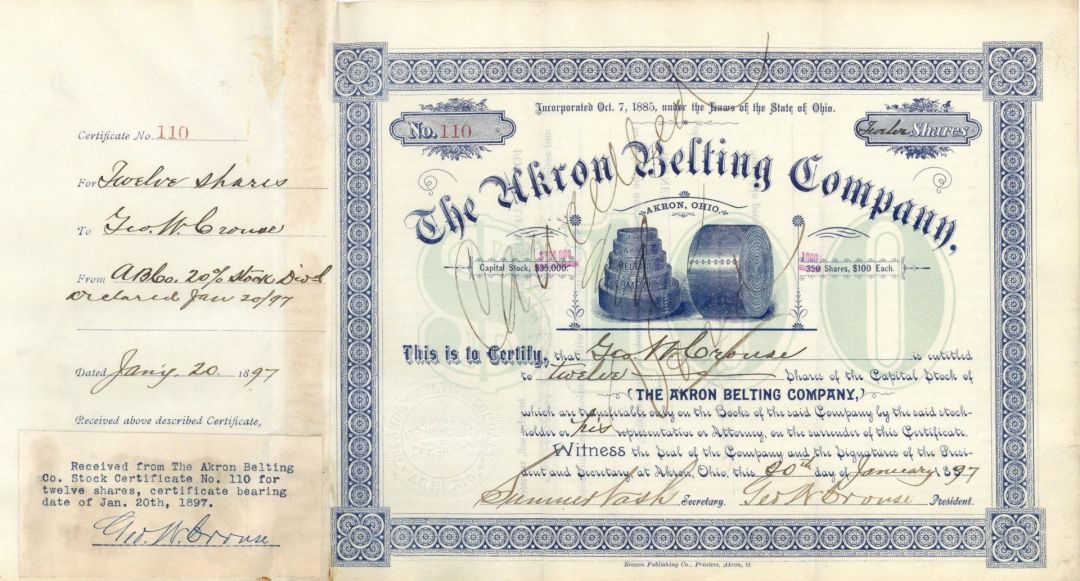 Certificate No. 110
For Twelve shares
To Geo. W. Crouse
From A B Co. 20% Stock Divd
Declared Jan 20/97
Dated Jan'y. 20. 1897
Received above described Certificate,
Received from The Akron Belting
Co. Stock Certificate No. 110 for
twelve shares, certificate bearing
date of Jan. 20th, 1897.
Geo. W. Crouse
Incorporated Oct. 7, 1885, under the Laws of the State of Ohio.
No. 110
Twelve Shares
The Akron Belting Company.
AKRON, OHIO.
$100,000
Capital Stock, $35,000.
1000
350 Shares, $100 Each.
$100
Cancelled
This is to Certify, that Geo. W. Crouse is entitled
to twelve Shares of the Capital Stock of
(THE AKRON BELTING COMPANY,)
which are transferable only on the Books of the said Company by the said stock-
holder or his representative or Attorney, on the surrender of this Certificate.
Witness the Seal of the Company and the Signatures of the Presi-
dent and Secretary, at Akron, Ohio, this 20th day of January 1897
Sumner Nash Secretary. Geo W Crouse President.
Beacon Publishing Co., Printers, Akron, O.